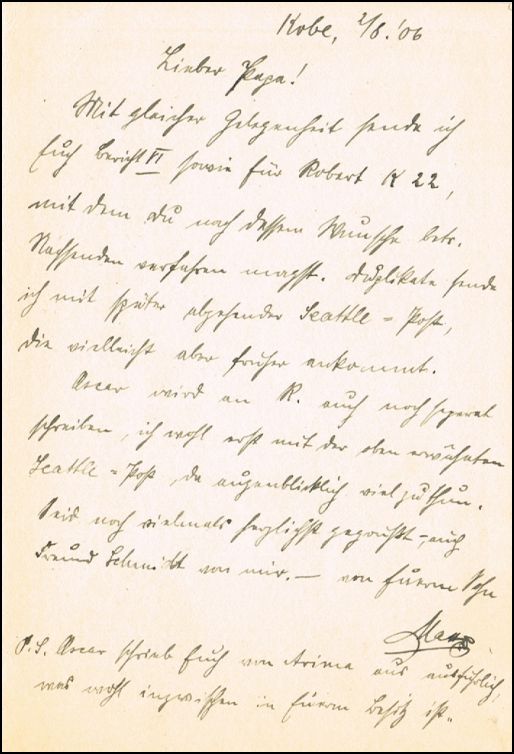 Kobe, 2/8.'06
Lieber Papa!
Mit gleicher Gelegenheit sende ich
Euch Bericht VI sowie für Robert K 22,
mit dem Du nach dessen Wunsche betr.
Nachsenden verfahren magst. Duplikate sende
ich mit später abgehender Seattle-Post,
die vielleicht aber früher ankommt.
Oscar wird an R. auch noch separat
schreiben, ich wohl erst mit der oben erwähnten
Seattle-Post, da augenblicklich viel zu thun.
Seid noch vielmals herzlichst gegrüsst, auch
Freund Schmidt von mir. — von Euerm Sohn
P.S. Oscar schrieb Euch von Arima aus ausführlich,
was wohl inzwischen in Euerm Besitz ist.